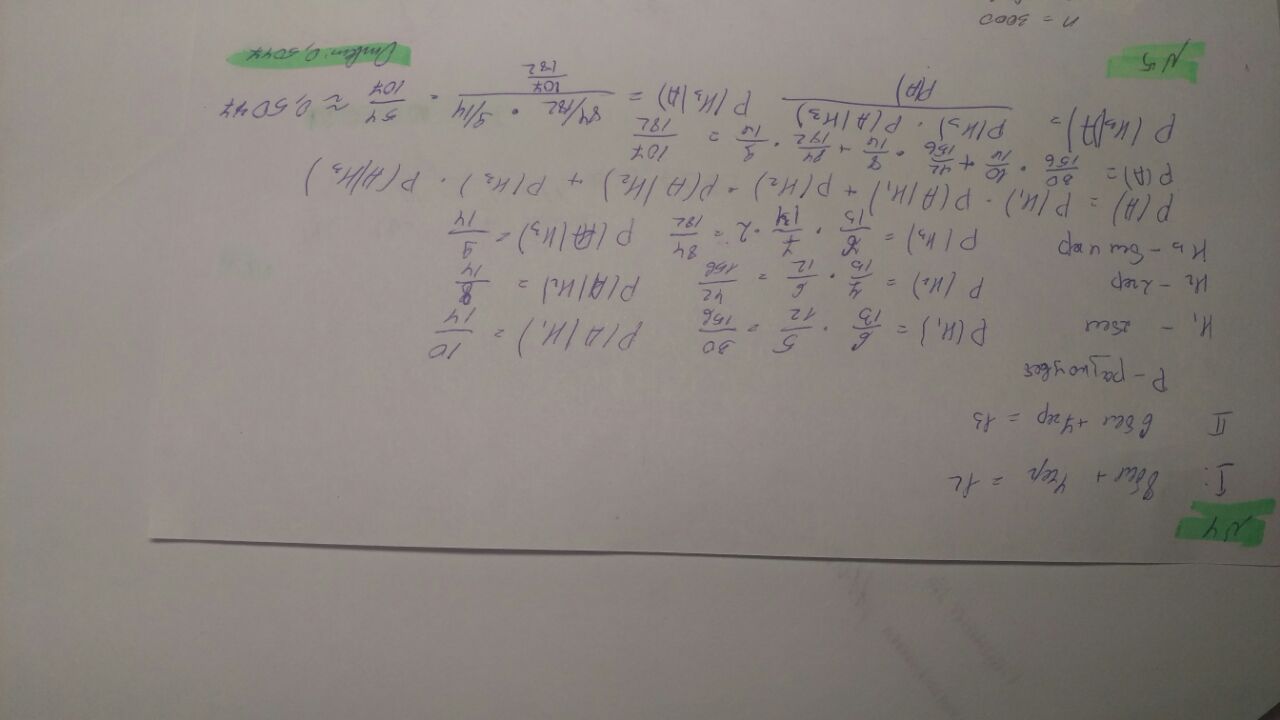 №4
I: 8 бел + 4 чер = 12
II 6 бел + 7 чер = 13
P -
H₁ - 2 бел P(H₁) = 6/13 · 5/12 = 30/156 P(A|H₁) = 10/14
H₂ - 2 чер P(H₂) = 7/13 · 6/12 = 42/156 P(A|H₂) = 8/14
H₃ - бел и чер P(H₃) = 6/13 · 7/ · 2 = 84/182 P(A|H₃) = 9/14
P(A) = P(H₁) · P(A|H₁) + P(H₂) · P(A|H₂) + P(H₃) · P(A|H₃)
P(A) = 30/156 · 10/14 + 42/156 · 8/14 + 84/192 · 9/14 = 107/182
P(H₃|A) = P(H₃) · P(A|H₃) / P(A) P(H₃|A) = 84/182 · 9/14 / 107/182 = 54/107 ≈ 0,5047
Ответ: 0,5047
№5
n = 3000